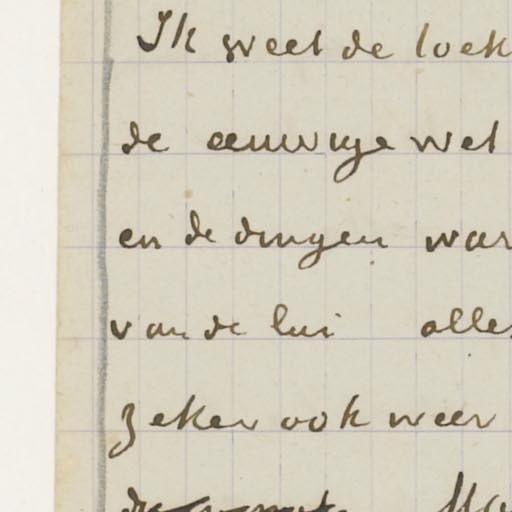 Ik weet de loek
de eeuwige wet
en de dingen war
van de lui alles
zeker ook weer